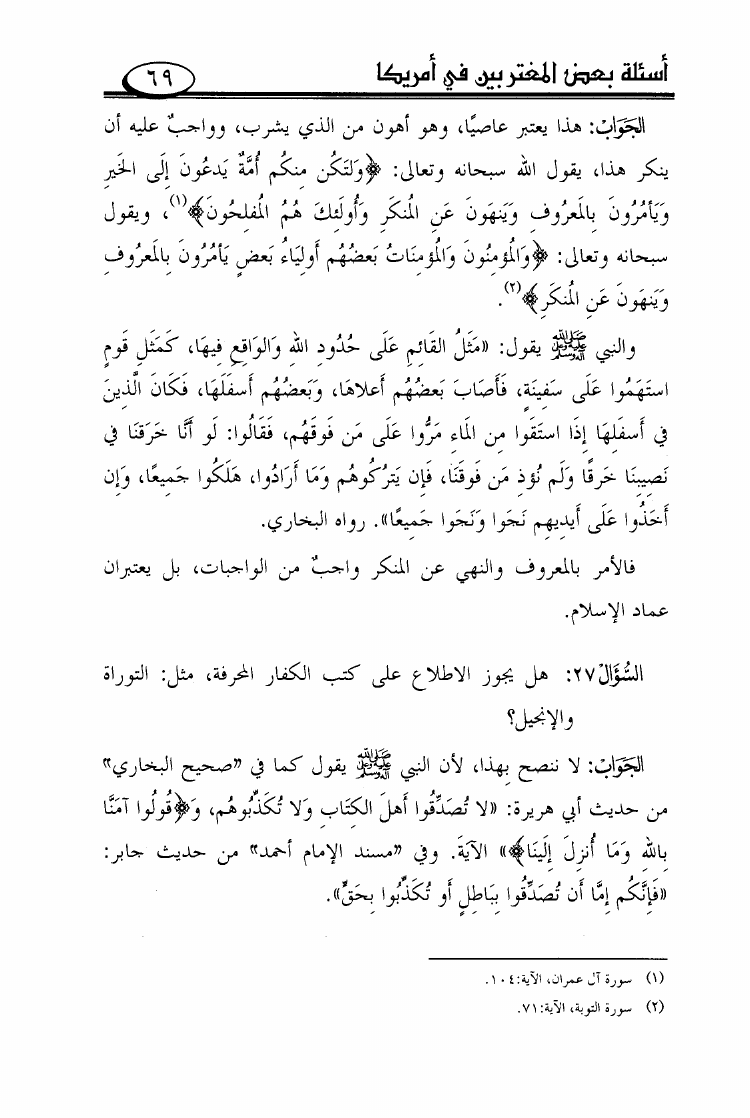 أسئلة بعض المغتربين في أمريكا
٦٩
الجَوَابُ: هذا يعتبر عاصيًا، وهو أهون من الذي يشرب، وواجبٌ عليه أن
ينكر هذا، يقول الله سبحانه وتعالى: ﴿وَلتَكُن مِنكُم أُمَّةٌ يَدعُونَ إِلَى الخَيرِ
وَيَأمُرُونَ بِالمَعرُوفِ وَيَنهَونَ عَنِ المُنكَرِ وَأُولَئِكَ هُمُ المُفلِحُونَ﴾(١)، ويقول
سبحانه وتعالى: ﴿وَالمُؤمِنُونَ وَالمُؤمِنَاتُ بَعضُهُم أَولِيَاءُ بَعضٍ يَأمُرُونَ بِالمَعرُوفِ
وَيَنهَونَ عَنِ المُنكَرِ﴾(٢).
والنبي ﷺ يقول: «مَثَلُ القَائِمِ عَلَى حُدُودِ اللهِ وَالوَاقِعِ فِيهَا، كَمَثَلِ قَومٍ
استَهَمُوا عَلَى سَفِينَةٍ، فَأَصَابَ بَعضُهُم أَعلاهَا، وَبَعضُهُم أَسفَلَهَا، فَكَانَ الَّذِينَ
فِي أَسفَلِهَا إِذَا استَقَوا مِنَ المَاءِ مَرُّوا عَلَى مَن فَوقَهُم، فَقَالُوا: لَو أَنَّا خَرَقنَا فِي
نَصِيبِنَا خَرقًا وَلَم نُؤذِ مَن فَوقَنَا، فَإِن يَترُكُوهُم وَمَا أَرَادُوا، هَلَكُوا جَمِيعًا، وَإِن
أَخَذُوا عَلَى أَيدِيهِم نَجَوا وَنَجَوا جَمِيعًا». رواه البخاري.
فالأمر بالمعروف والنهي عن المنكر واجبٌ من الواجبات، بل يعتبران
عماد الإسلام.
السُّؤَالُ٢٧: هل يجوز الاطلاع على كتب الكفار المحرفة، مثل: التوراة
والإنجيل؟
الجَوَابُ: لا ننصح بهذا، لأن النبي ﷺ يقول كما في "صحيح البخاري"
من حديث أبي هريرة: «لا تُصَدِّقُوا أَهلَ الكِتَابِ وَلا تُكَذِّبُوهُم، وَ﴿قُولُوا آمَنَّا
بِاللهِ وَمَا أُنزِلَ إِلَينَا﴾» الآيَةَ. وفي "مسند الإمام أحمد" من حديث جابر:
«فَإِنَّكُم إِمَّا أَن تُصَدِّقُوا بِبَاطِلٍ أَو تُكَذِّبُوا بِحَقٍّ».
(١) سورة آل عمران، الآية:١٠٤.
(٢) سورة التوبة، الآية:٧١.